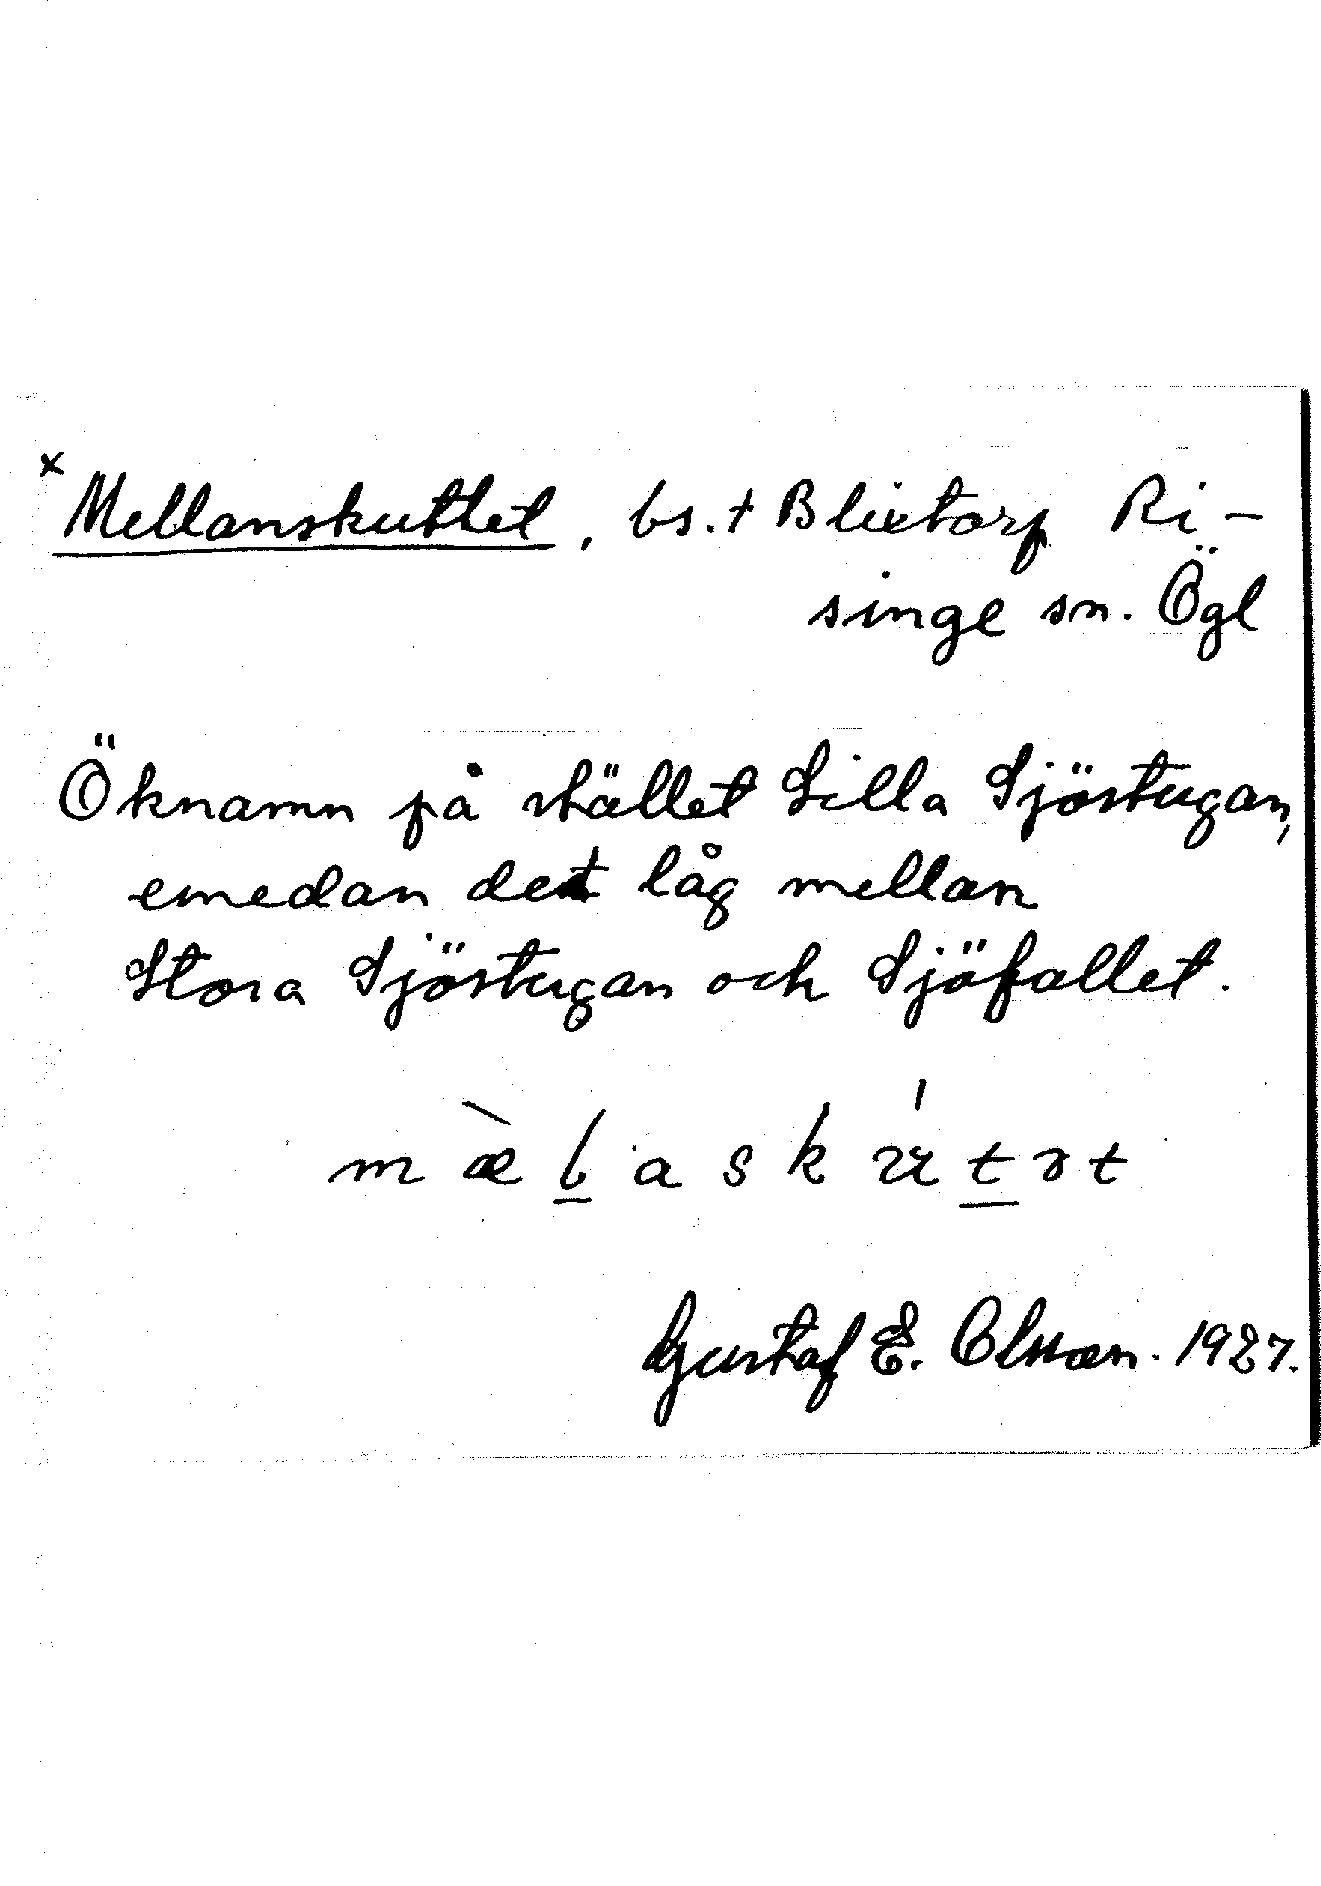 x Mellanskuttet, bs. t Blixtorp Ri-
singe sn. Ögl
Öknamn på stället Lilla Sjöstugan,
emedan det låg mellan
Stora Sjöstugan och Sjöfallet.
Gustaf E. Olsson. 1927.